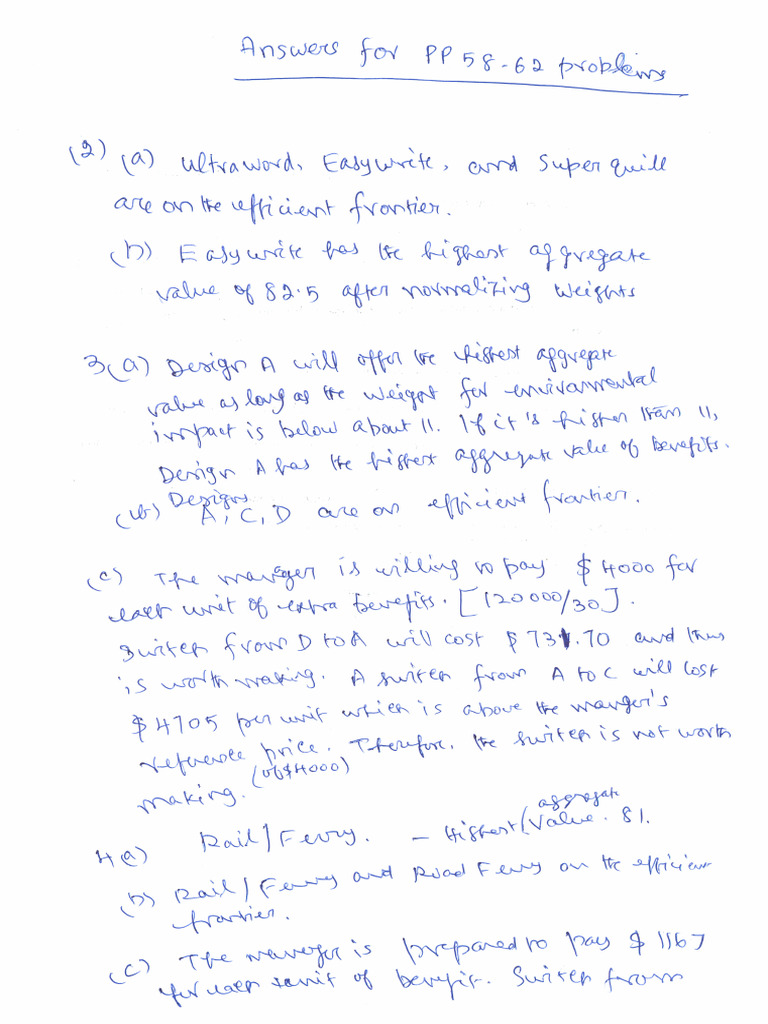 Answers for PP 58-62 problems
(2) (a) Ultraword, Easywrite, and Super quill
are on the efficient frontier.
(b) Easywrite has the highest aggregate
value of 82.5 after normalizing weights
3(a) Design A will offer the highest aggregate
value as long as the weight for environmental
impact is below about 11. If it's higher than 11,
Design A has the highest aggregate value of benefits.
(b) Designs
A, C, D are on efficient frontier.
(c) The manager is willing to pay $4000 for
each unit of extra benefits. [120000/30].
Switch from D to A will cost $731.70 and thus
is worth making. A switch from A to C will cost
$4705 per unit which is above the manger's
reference price. Therefore, the switch is not worth
(of $4000)
making.
aggregate
4(a) Rail/Ferry. - Highest/value. 81.
(b) Rail/Ferry and Road Ferry on the efficient
frontier.
(c) The manager is prepared to pay $1167
for each unit of benefit. Switch from